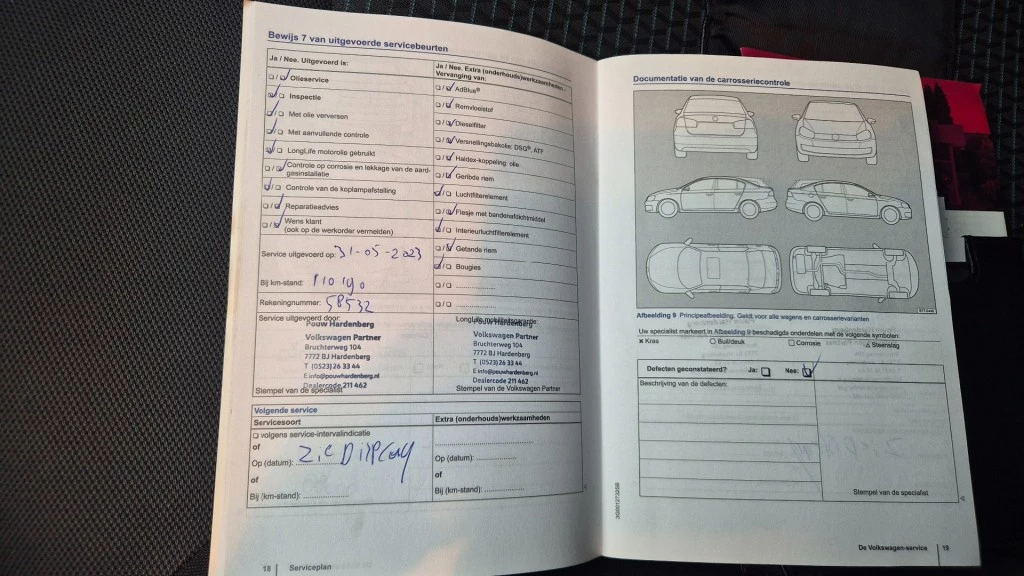 Bewijs 7 van uitgevoerde servicebeurten
Ja / Nee. Uitgevoerd is:
Olieservice
Inspectie
Met olie verversen
Met aanvullende controle
LongLife motorolie gebruikt
Controle op corrosie en lekkage van de aard-
gesinstallatie
Controle van de koplampafstelling
Reparatieadvies
Wens klant
(ook op de werkorder vermelden)
Service uitgevoerd op: 31-05-2023
Bij km-stand:
Rekeningnummer: 58532
Service uitgevoerd door:
Pouw Hardenberg
Volkswagen Partner
Bruchterweg 104
7772 BJ Hardenberg
T (0523) 26 33 44
E info@pouwhardenberg.nl
Dealercode 211 462
Stempel van de specialist
Ja / Nee. Extra (onderhouds)werkzaamheden -
Vervanging van:
AdBlue®
Remvloeistof
Dieselfilter
Versnellingsbakolie: DSG®, ATF
Haldex-koppeling: olie
Geribde riem
Luchtfilterelement
Flesje met bandenafdichtmiddel
Interieurluchtfilterelement
Getande riem
Bougies
LongLife mobiliteitsgarantie:
Pouw Hardenberg
Volkswagen Partner
Bruchterweg 104
7772 BJ Hardenberg
T (0523) 26 33 44
E info@pouwhardenberg.nl
Dealercode 211 462
Stempel van de Volkswagen Partner
Volgende service
Servicesoort
volgens service-intervalindicatie
of
Op (datum): zie DISPLAY
of
Bij (km-stand):
Extra (onderhouds)werkzaamheden
Op (datum):
of
Bij (km-stand):
18 | Serviceplan
Documentatie van de carrosseriecontrole
Afbeelding 9 Principeafbeelding. Geldt voor alle wagens en carrosserievarianten
Uw specialist markeert in Afbeelding 9 beschadigde onderdelen met de volgende symbolen:
× Kras ○ Buil/deuk □ Corrosie △ Steenslag
Defecten geconstateerd? Ja: Nee:
Beschrijving van de defecten:
Stempel van de specialist
De Volkswagen-service | 19